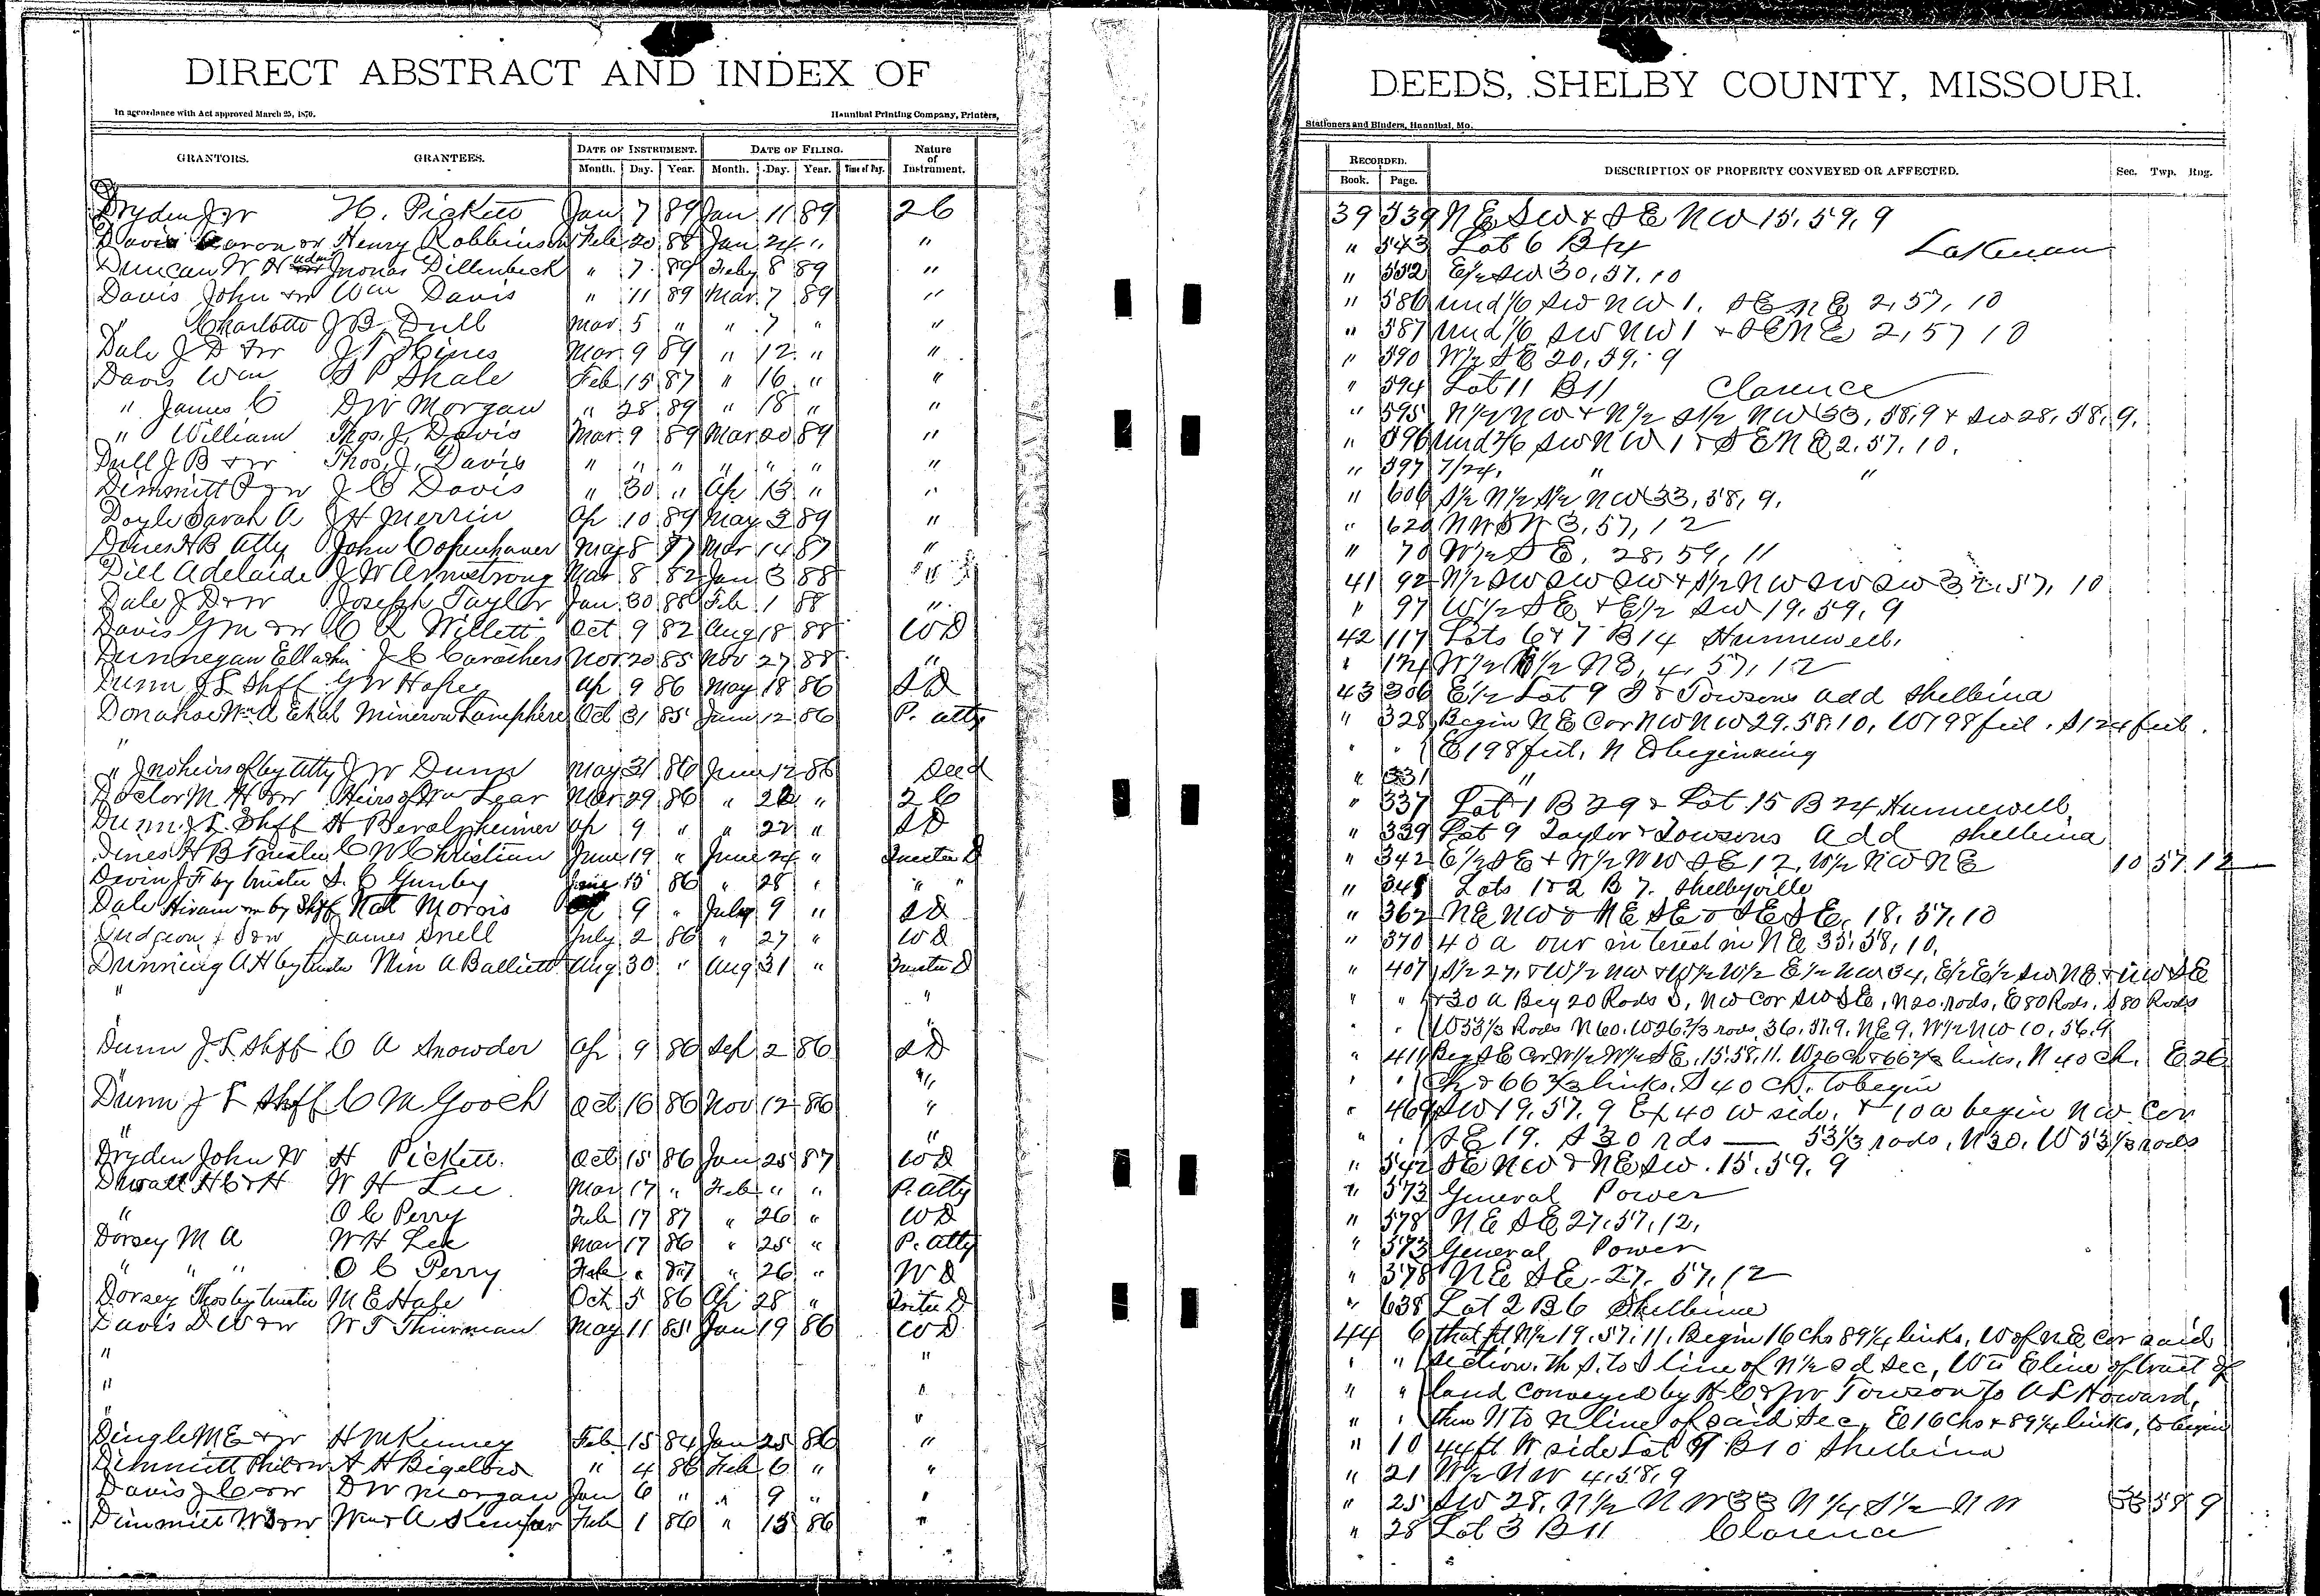 DIRECT ABSTRACT AND INDEX OF
In accordance with Act approved March 25, 1870. Hannibal Printing Company, Printers,
GRANTORS. GRANTEES. DATE OF INSTRUMENT. DATE OF FILING. Nature of Instrument.
Month. Day. Year. Month. Day. Year. Time of Day.
Dryden J W H. Pickett Jan 7 89 Jan 11 89 2C
Davis Aaron or Henry Robbinson Feb 20 88 Jan 24 " "
Duncan W H adm Dillenbeck " 7 89 Feby 8 89 "
Davis John & W Wm Davis " 11 89 Mar 7 89 "
" Charlotte J B Dull Mar 5 " " 7 " "
Dale J D & W J T Hines Mar 9 89 " 12 " "
Davis Wm S P Shale Feb 15 87 " 16 " "
" James C D W Morgan " 28 89 " 18 " "
" William Thos. J. Davis Mar 9 89 Mar 20 89 "
Dull J B & W Thos. J. Davis " " " " " " "
Dimmitt P & W J C Davis " 30 " Ap 13 " "
Doyle Sarah A J H Merrin Ap 10 89 May 3 89 "
Dines H B Atty John Copenhaver May 8 87 Mar 14 87 "
Dill Adelaide J W Armstrong Mar 8 82 Jan 3 88 "
Dale J D & W Joseph Taylor Jan 30 88 Feb 1 88 "
Davis G M & W C R Willett Oct 9 82 Aug 18 88 WD
Dunnegan Ella J C Carothers Nov 20 85 Nov 27 88 "
Dunn J L Shff G W Hofee Ap 9 86 May 18 86 SD
Donahoe Wm A Etal Minerva Lamphere Oct 31 85 June 12 86 P. atty
"
" Jno heirs of by Atty J W Dunn May 31 86 June 12 86 Deed
Doctor M H & W Heirs of Wm Lear Mar 29 86 " 22 " 2C
Dunn J L Shff H Beralzheimer Ap 9 " " 22 " SD
Dines H B Trustee C W Christian June 19 " June 24 " Trustee D
Devin J F by trustee S. C Gunby June 15 86 " 28 " " "
Dale Hiram by Shff Nat Morris Ap 9 " July 9 " SD
Dudgeon & W James Snell July 2 86 " 27 " WD
Dunning A H by trustee Min A Balliett Aug 30 " Aug 31 " Trustee D
" "
Dunn J L Shff C A Snowder Ap 9 86 Sep 2 86 SD
"
Dunn J L Shff C M Gooch Oct 16 86 Nov 12 86 "
" "
Dryden John W H Pickett Oct 15 86 Jan 25 87 WD
Duvall H C & H W H Lee Mar 17 " Feb " " P. atty
" O C Perry Feb 17 87 " 26 " WD
Dorsey M A W H Lee Mar 17 86 " 25 " P. atty
" " " O C Perry Feb " 87 " 26 " WD
Dorsey Thos by trustee M E Hale Oct 5 86 Ap 28 " Trustee D
Davis D W & W W T Thurman May 11 85 Jan 19 86 WD
" "
" "
" "
Dingle M E & W H McKinney Feb 15 84 Jan 25 86 "
Dimmitt Phil & W A H Bigelow " 4 86 Feb 6 " "
Davis J C & W D W Morgan Jan 6 " " 9 " "
Dimmitt W & W Wm A Feb 1 86 " 15 86 "
DEEDS, SHELBY COUNTY, MISSOURI.
Stationers and Binders, Hannibal, Mo.
RECORDED. DESCRIPTION OF PROPERTY CONVEYED OR AFFECTED. Sec. Twp. Rng.
Book. Page.
39 539 NE SW & SE NW 15, 59, 9
" 543 Lot 6 B 14 Lakenan
" 552 E½ SW 30, 57, 10
" 586 und 1/6 SW NW 1, SE NE 2, 57, 10
" 587 und 1/6 SW NW 1 & SE NE 2, 57 10
" 590 W½ SE 20, 59, 9
" 594 Lot 11 B 11 Clarence
" 595 N½ NW & N½ S½ NW 33, 58, 9 & SW 28, 58, 9.
" 596 und 2/6 SW NW 1 & SE NE 2, 57, 10.
" 597 7/24, " "
" 606 S½ N½ S½ NW 33, 58, 9.
" 620 NW SW 3, 57, 12
" 70 W½ SE, 28, 59, 11
41 92 N½ SW SW SW & S½ NW SW SW 32, 57, 10
" 97 W½ SE & E½ SW 19, 59, 9
42 117 Lots 6 & 7 B 14 Hunnewell.
" 124 W½ E½ NE, 4, 57, 12
43 306 E½ Lot 9 T & Towsons add Shelbina
" 328 Begin NE Cor NW NW 29, 58, 10, W 198 feet, S 124 feet.
" " E 198 feet, N to beginning
" 331 "
" 337 Lot 1 B 29 & Lot 15 B 24 Hunnewell
" 339 Lot 9 Taylor & Towsons Add Shelbina
" 342 E½ SE & W½ NW SE 12, W½ NW NE 10 57. 12
" 348 Lots 1 & 2 B 7. Shelbyville
" 362 NE NW & NE SE & SE SE, 18, 57, 10
" 370 40 a our interest in NE 35, 58, 10.
" 407 S½ 27, & W½ NW & W½ W½ E½ NW 34, E½ E½ SW NE & NW SE
" " & 30 a Beg 20 Rods S, NW Cor SW SE, N 20 rods, E 80 Rods, S 80 Rods
" " W 53 1/3 Rods N 60. W 26 2/3 rods, 36, 57, 9, NE 9, W½ NW 10, 56, 9
" 411 Beg SE Cor W½ W½ SE, 15, 58, 11. W 26 Ch & 66 2/3 links, N 40 ch. E 26
" " Ch & 66 2/3 links, S 40 Ch. to begin
" 469 SW 19, 57, 9 Ex 40 W side, & 10 a begin NW Cor
" " SE 19. S 30 rds — 53 1/3 rods, N 30, W 53 1/3 rods
" 542 SE NW & NE SW. 15, 59, 9
" 573 General Power
" 578 NE SE 27, 57, 12,
" 573 General Power
" 578 NE SE 27, 57, 12
" 638 Lot 2 B 6 Shelbina
44 6 that pt N½ 19, 57, 11. Begin 16 Chs 89¼ links, W of NE Cor said
" " section, th S. to S line of N½ sd sec, W to E line of tract of
" " land conveyed by H C & J W Towson to A L Howard,
" " then N to N line of said sec, E 16 Chs & 89¼ links, to begin
" 10 44 ft W side Lot 9 B 10 Shelbina
" 21 W½ NW 4, 58, 9
" 25 SW 28, N½ NW 33 N¼ S½ NW 33 58 9
" 28 Lot 3 B 11 Clarence